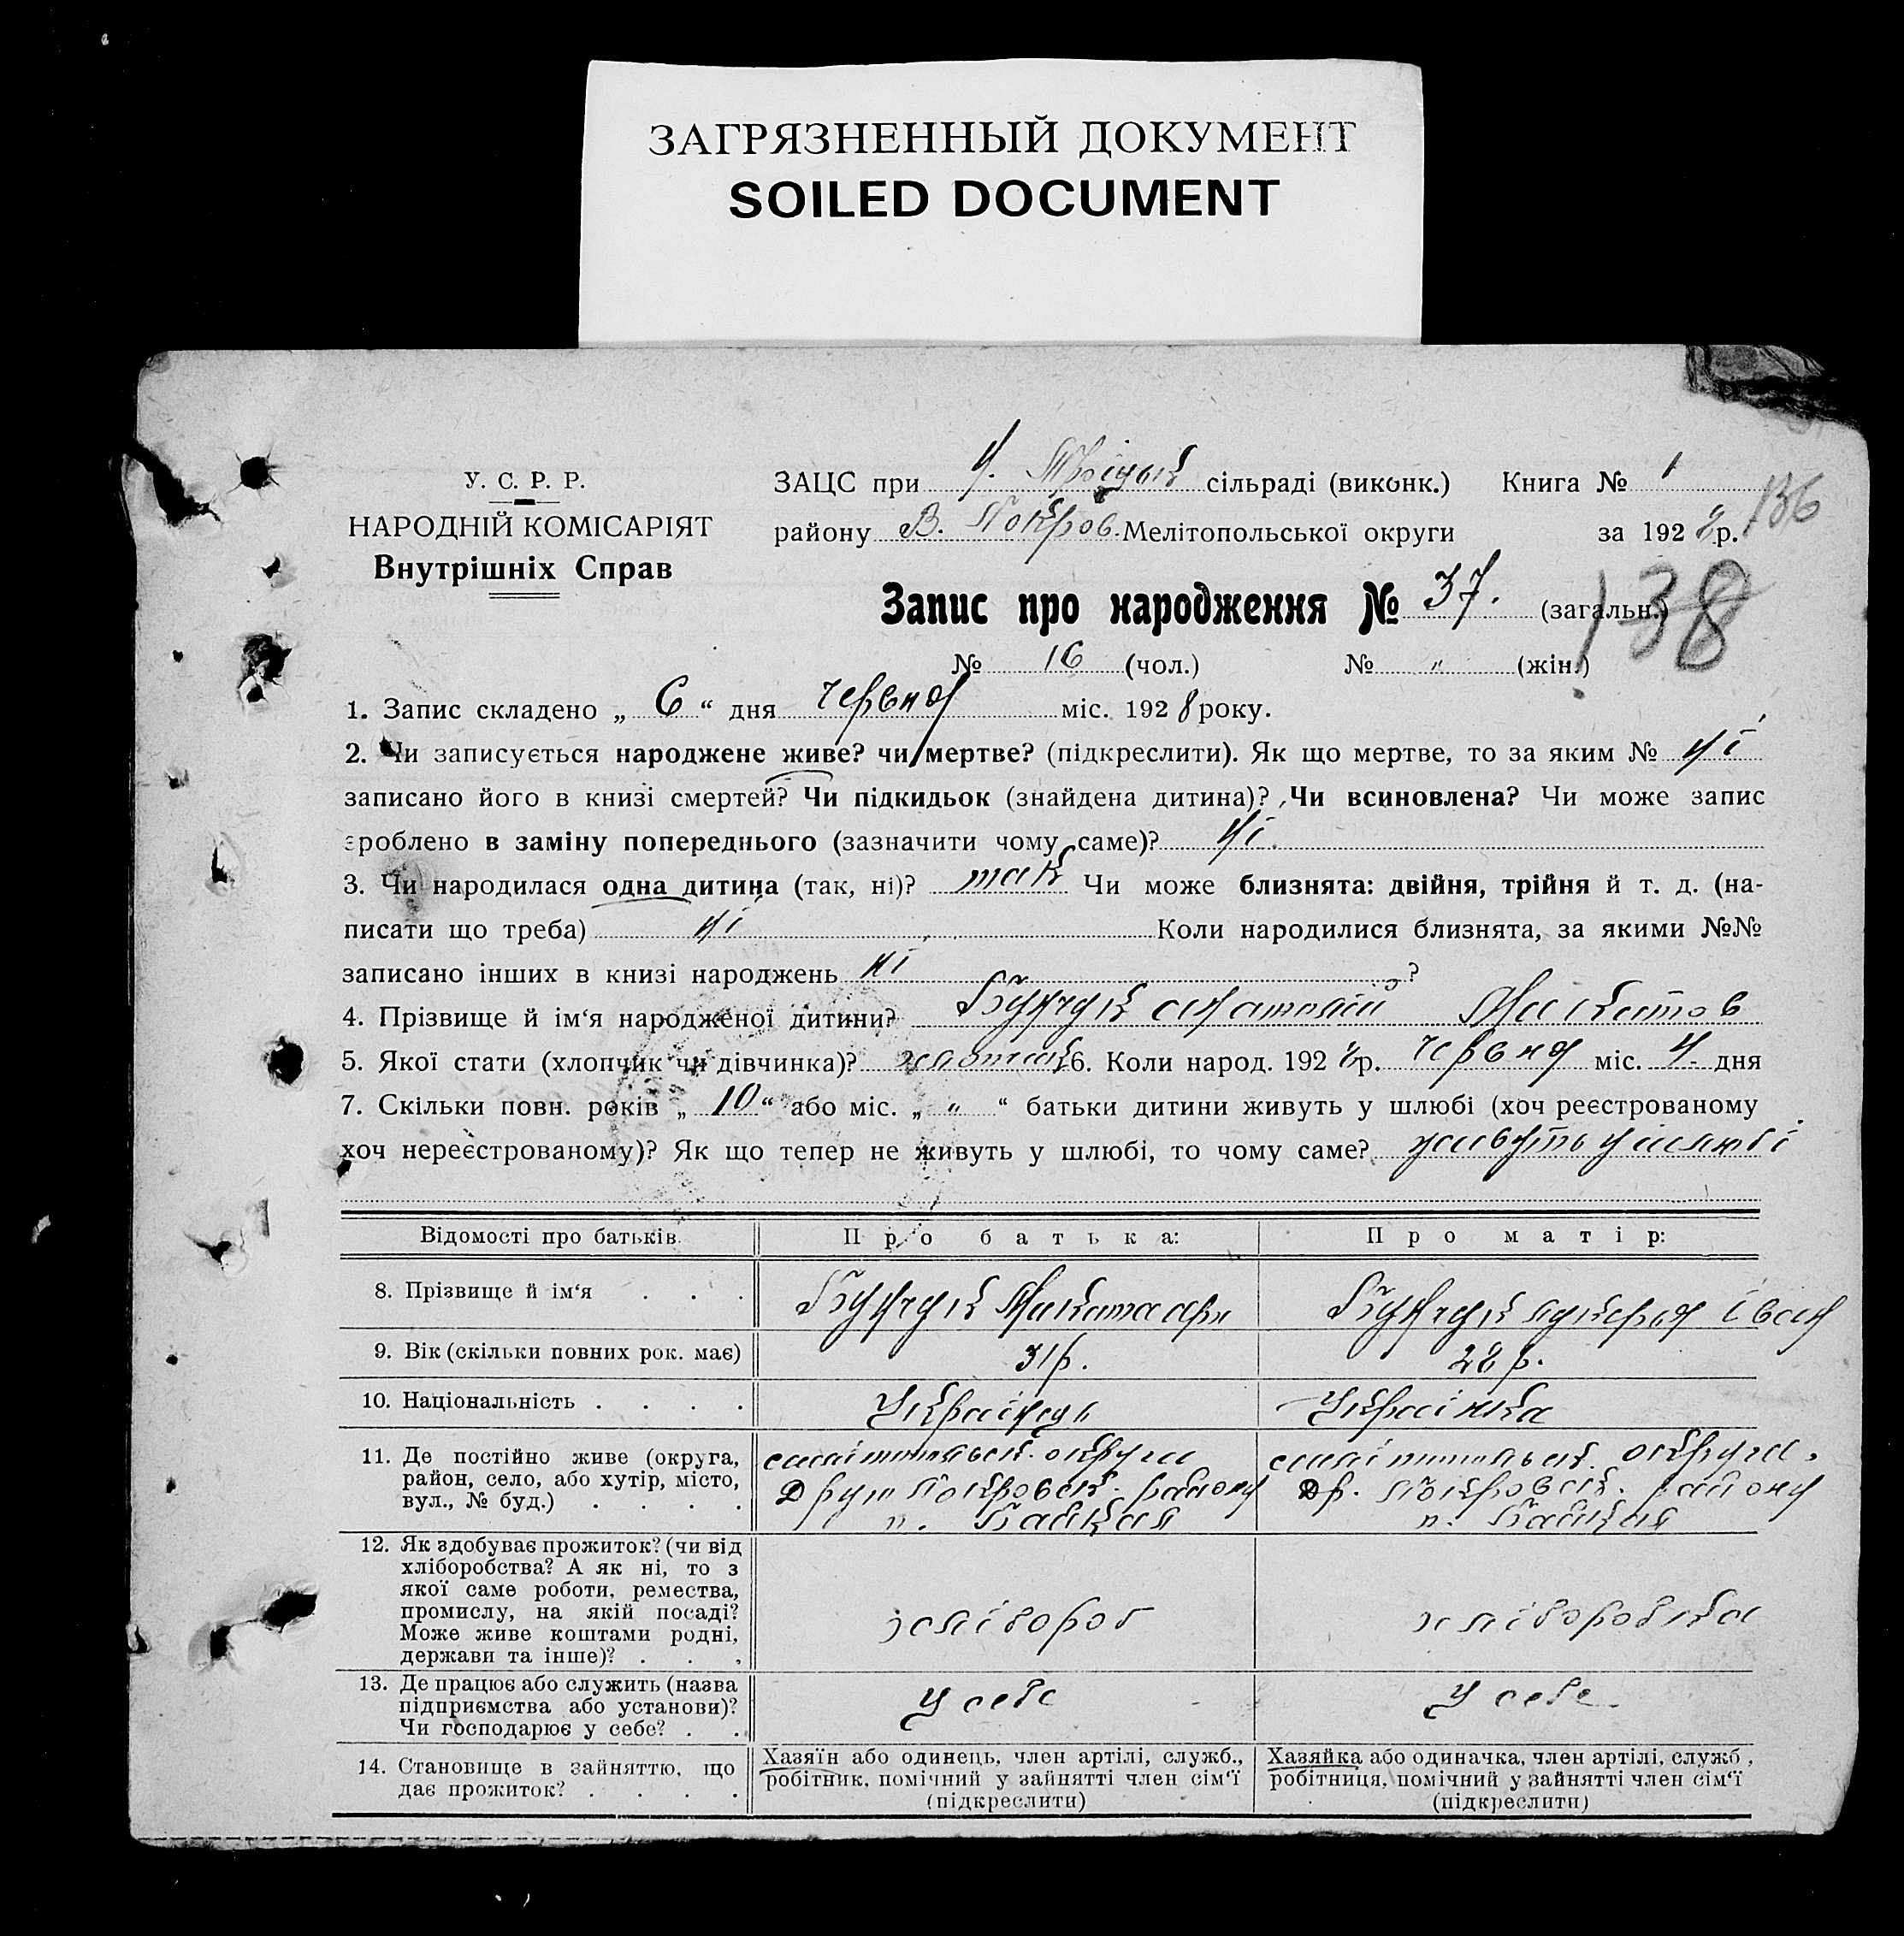 ЗАГРЯЗНЕННЫЙ ДОКУМЕНТ
SOILED DOCUMENT
У. С. Р. Р.
НАРОДНІЙ КОМІСАРІЯТ
Внутрішніх Справ
ЗАЦС при сільраді (виконк.) Книга № 1
району В. Покров. Мелітопольської округи за 1928 р. 136
Запис про народження № 37. (загальн.) 138
№ 16 (чол.) № " (жін.)
1. Запис складено „ 6 “ дня червня міс. 1928 року.
2. Чи записується народжене живе? чи мертве? (підкреслити). Як що мертве, то за яким № ні
записано його в книзі смертей? Чи підкидьок (знайдена дитина)? Чи всиновлена? Чи може запис
зроблено в заміну попереднього (зазначити чому саме)? ні.
3. Чи народилася одна дитина (так, ні)? так Чи може близнята: двійня, трійня й т. д. (на-
писати що треба) ні Коли народилися близнята, за якими №№
записано інших в книзі народжень ні ?
4. Прізвище й ім‘я народженої дитини? Бунчук анатолій Микитов
5. Якої стати (хлопчик чи дівчинка)? 6. Коли народ. 1928 р. червня міс. 4 дня
7. Скільки повн. років „ 10 “ або міс. „ " “ батьки дитини живуть у шлюбі (хоч реєстрованому
хоч нереєстрованому)? Як що тепер не живуть у шлюбі, то чому саме? живуть у шлюбі
Відомості про батьків. Про батька: Про матір:
8. Прізвище й ім‘я . . . Бунчук Микита Бунчук лукерья Іван
9. Вік (скільки повних рок. має) 31 р. 28 р.
10. Національність . . . . Українець Українка
11. Де постійно живе (округа, округи округи.
район, село, або хутір, місто, Друг Покровськ. району Др. Покровськ. району
вул., № буд.) . . . . п. п.
12. Як здобуває прожиток? (чи від
хліборобства? А як ні, то з
якої саме роботи, ремества,
промислу, на якій посаді? хлібороб хліборобка
Може живе коштами родні,
держави та інше)? . . .
13. Де працює або служить (назва у себе у себе
підприємства або установи)?
Чи господарює у себе? . .
14. Становище в зайняттю, що Хазяїн або одинець, член артілі, служб., Хазяйка або одиначка, член артілі, служб.,
дає прожиток? . . . . робітник, помічний у зайнятті член сім‘ї робітниця, помічний у зайнятті член сім‘ї
(підкреслити) (підкреслити)